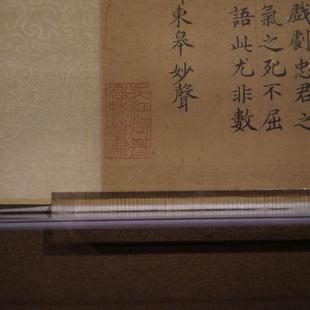 戲劇忠君之
氣之死不屈
語此尤非數
東皋妙聲